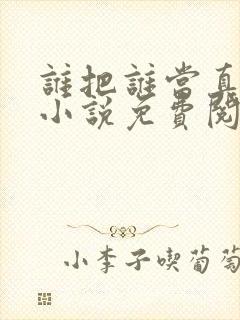 誰把誰當真
小說免費閱
小李子喫葡萄